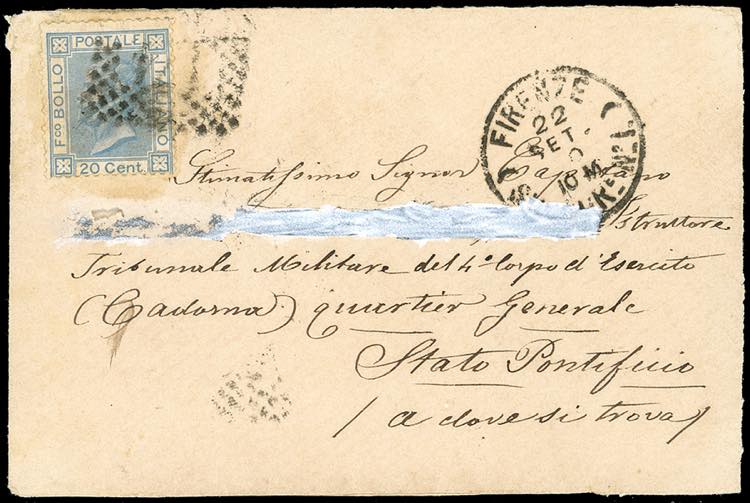 POSTALE
Fco BOLLO
ITALIANO
20 Cent.
FIRENZE
22
SET.
10 M
Stimatissimo Signor Capitano
Istruttore
Tribunale Militare del 4º Corpo d'Esercito
(Cadorna) quartier Generale
Stato Pontificio
(a dove si trova)